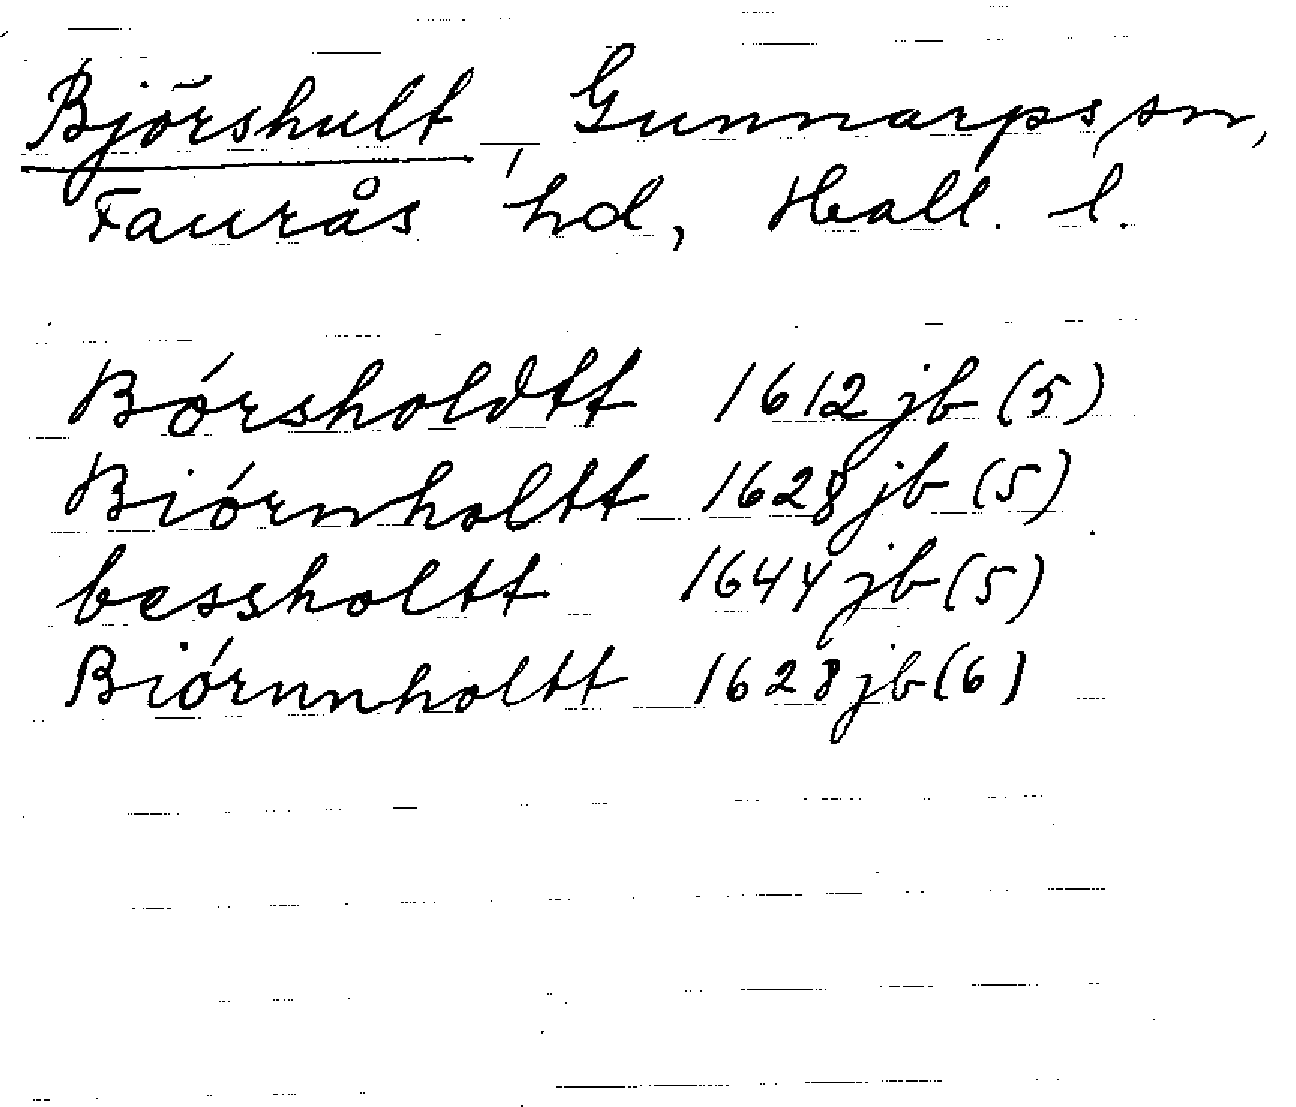 Björshult, Gunnarps sn,
Faurås hd, Hall. l.
Bórsholdtt 1612 jb (5)
Biórnholtt 1628 jb (5)
bessholtt 1644 jb (5)
Biórnnholtt 1628 jb (6)